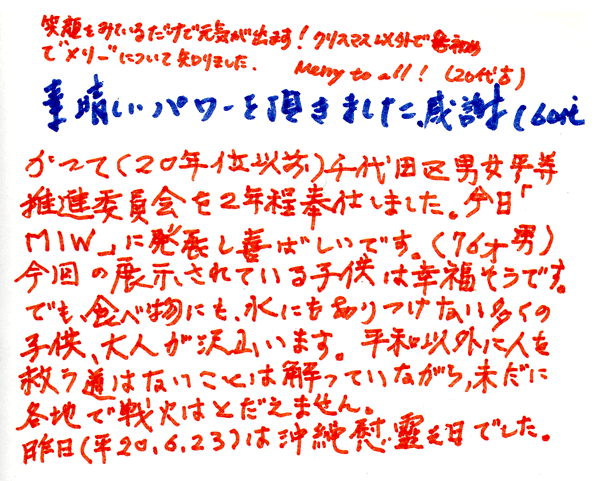 笑顔をみているだけで元気が出ます！クリスマス以外で初め
で"メリー"について知りました．
Merry to all！（20代女）
素晴しいパワーを頂きました、感謝（60才
かつて（20年位以前）千代田区男女平等
推進委員会を2年程奉仕しました。今日「
MIW」に発展し喜ばしいです。（76才男）
今回の展示されている子供は幸福そうです。
でも、食べ物にも、水にもありつけない多くの
子供、大人が沢山います。平和以外に人を
救う道はないことは解っていながら、未だに
各地で戦火はとだえません。
昨日（平20.6.23）は沖縄慰霊之日でした。